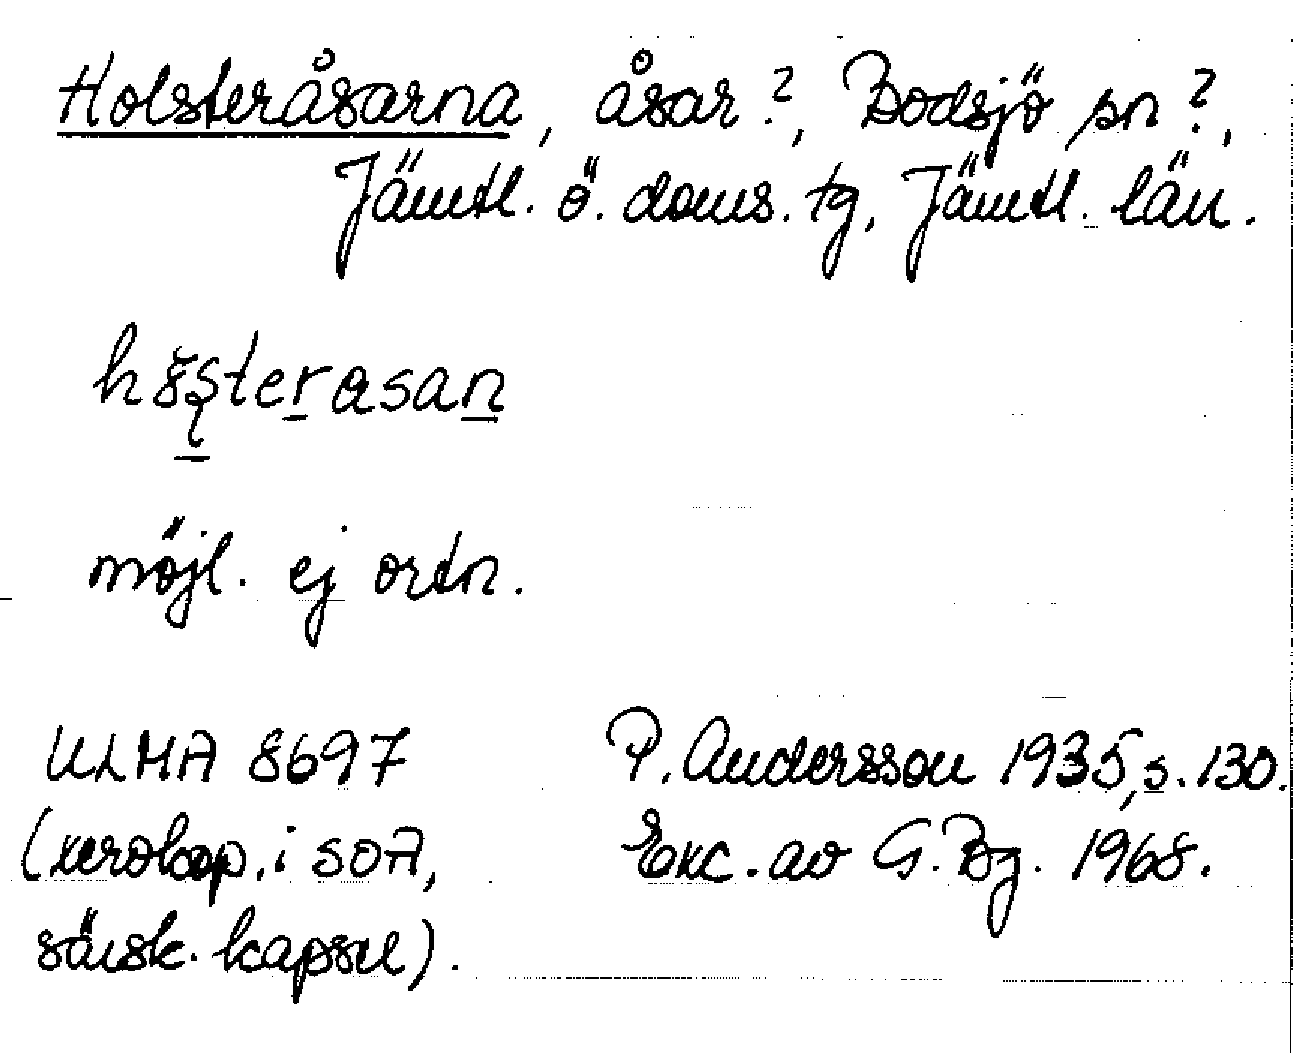 Holsteråsarna, åsar?, Bodsjö sn?,
Jämtl. ö. doms. tg, Jämtl. län.
möjl. ej ortn.
ULMA 8697 P. Andersson 1935, s. 130.
(xerokop. i SOA, Exc. av G. Bg. 1968.
särsk. kapsel).